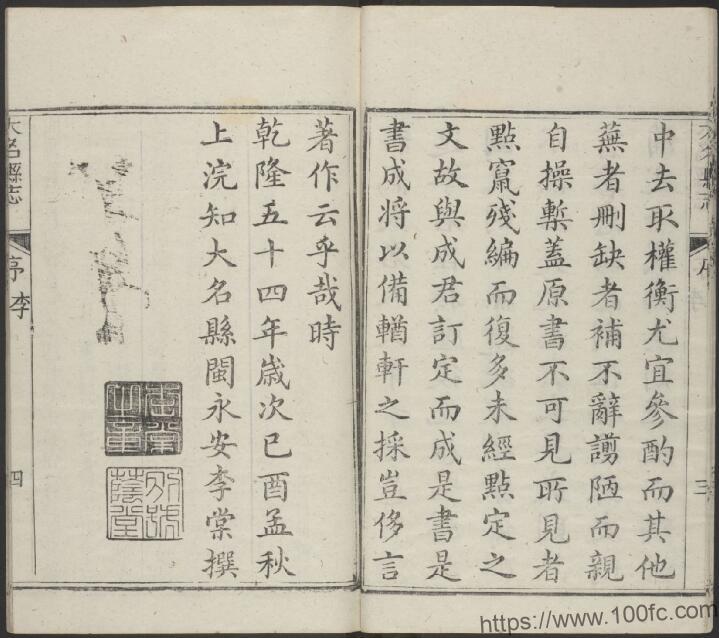 中去取權衡尤宜參酌而其他
蕪者刪缺者補不辭謭陋而親
自操槧蓋原書不可見所見者
點竄殘編而復多未經點定之
文故與成君訂定而成是書是
書成將以備輶軒之採豈侈言
三
著作云乎哉時
乾隆五十四年歲次已酉孟秋
上浣知大名縣閩永安李棠撰
大名縣志
序李
四
https://www.100fc.com